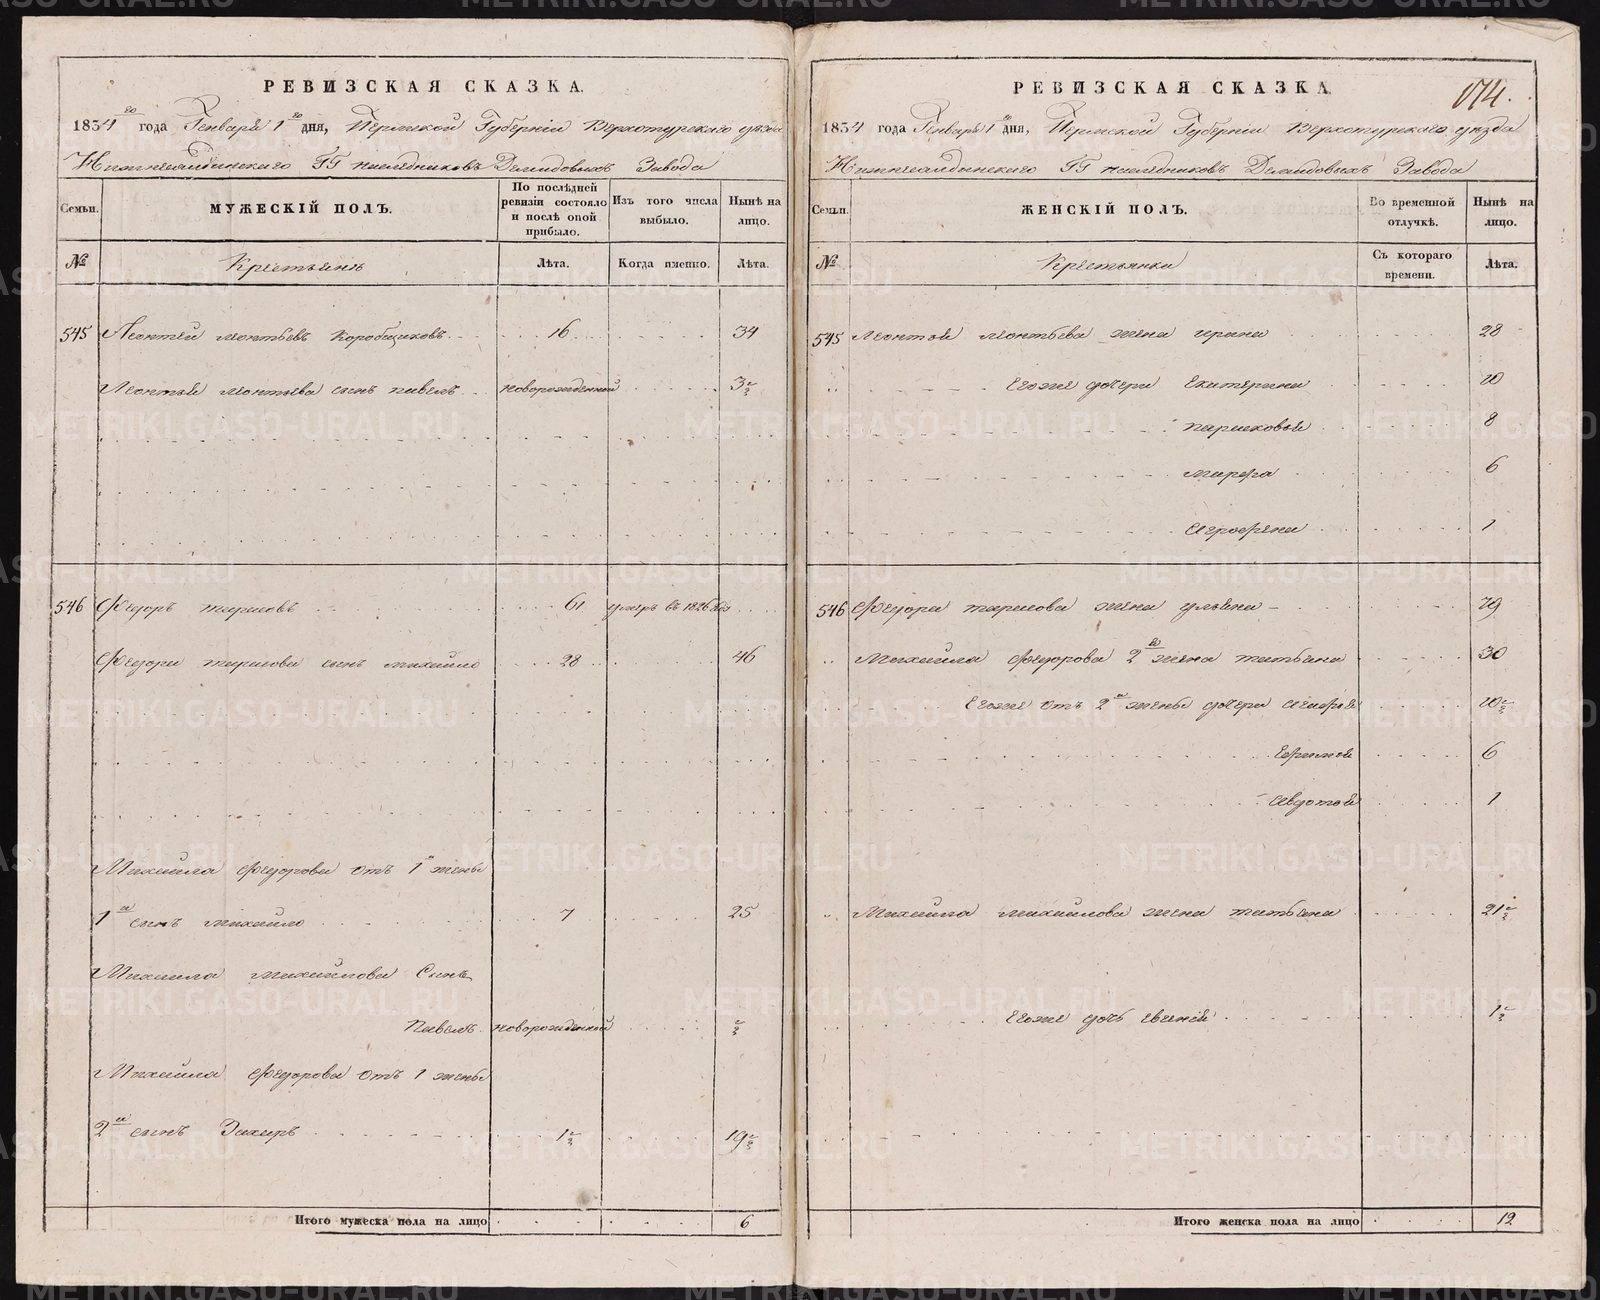 РЕВИЗСКАЯ СКАЗКА.
1834 го года Генваря 1 го дня, Пермской Губерніи Верхотурскаго уезда
Нижнесалдинскаго ГГ наследниковъ Демидовыхъ Завода
Семьи.
МУЖЕСКІЙ ПОЛЪ.
По послѣдней ревизіи состояло и послѣ оной прибыло.
Изъ того числа выбыло.
Нынѣ на лицо.
№
Крестьянъ
Лѣта.
Когда именно.
Лѣта.
545 Леонтей Леонтьевъ Коробщиковъ 16 34
Леонтья Леонтьева сынъ Павелъ новорожденной 3 ½
546 Федоръ 61 умеръ въ 1826 году
Федора сынъ Михайло 28 46
Михайла Федорова отъ 1 й жены
1 й сынъ Михайло 7 25
Михайла Михайлова Сынъ
Павелъ новорожденной ½
Михайла Федорова отъ 1 жены
2 й сынъ Захаръ 1 ½ 19 ½
Итого мужеска пола на лицо 6
РЕВИЗСКАЯ СКАЗКА.
174.
1834 года Генваря 1 го дня, Пермской Губерніи Верхотурскаго уезда
Нижнесалдинскаго ГГ наследниковъ Демидовыхъ Завода
Семьи.
ЖЕНСКІЙ ПОЛЪ.
Во временной отлучкѣ.
Нынѣ на лицо.
№
Крестьянки
Съ котораго времени.
Лѣта.
545 Леонтья Леонтьева жена Ирина 28
Егоже дочери Екатерина 10
Парасковья 8
Марфа 6
Аграфена 1
546 Федора жена Ульяна 79
Михайла Федорова 2 я жена Татьяна 30
Егоже отъ 2 й жены дочери Агафья 10 ½
Ефимья 6
Авдотья 1
Михайла Михайлова жена Татьяна 21 ½
Егоже дочь Евгенія 1 ½
Итого женска пола на лицо 12
METRIKI.GASO-URAL.RU